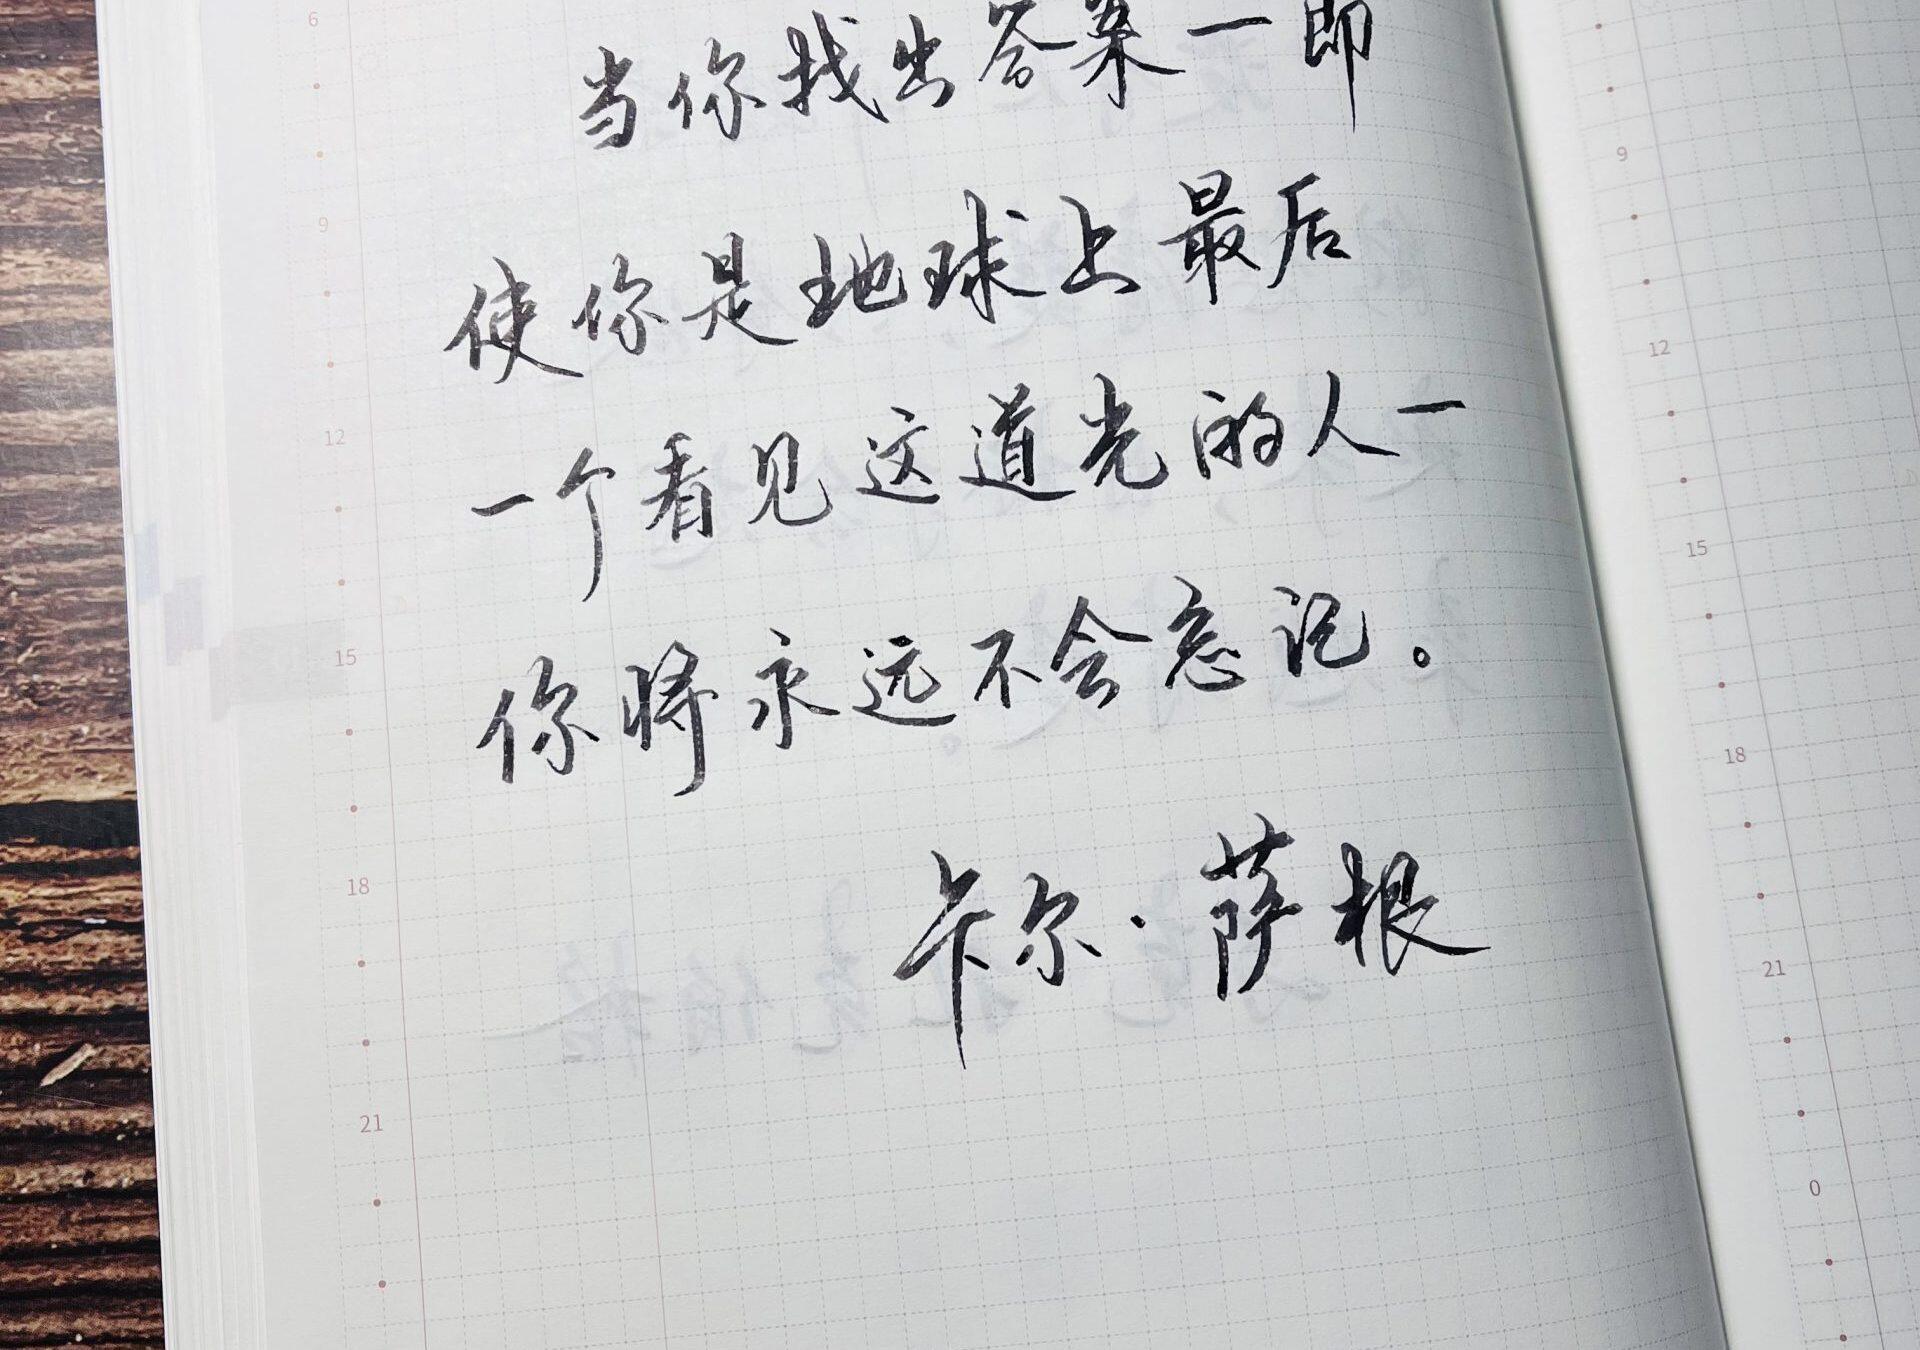 当你找出答案一即
使你是地球上最后
一个看见这道光的人一
你将永远不会忘记。
卡尔·萨根
6
9
12
15
18
21
9
12
15
18
21
0